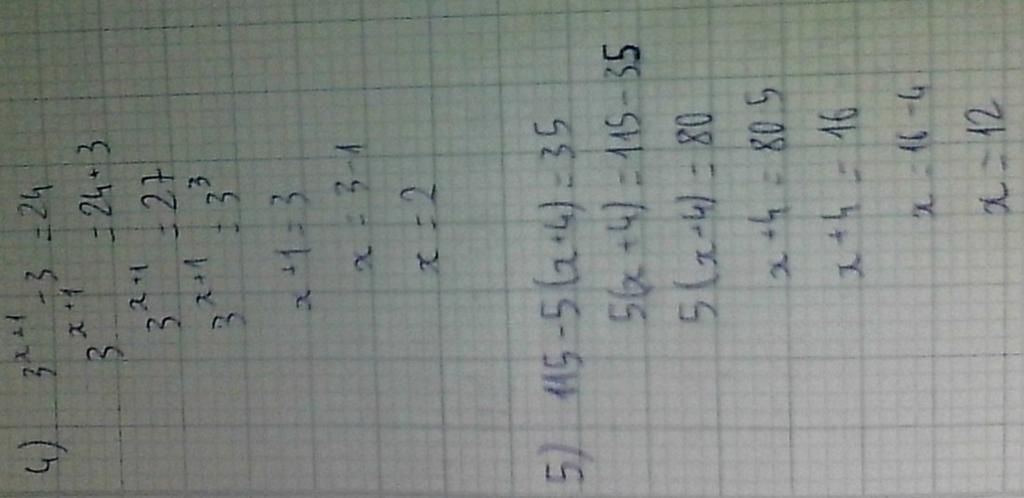 4) 3^(x+1) - 3 = 24
3^(x+1) = 24+3
3^(x+1) = 27
3^(x+1) = 3^3
x+1 = 3
x = 3-1
x = 2
5) 115-5(x+4)=35
5(x+4)=115-35
5(x+4)=80
x+4=80 5
x+4=16
x=16-4
x=12